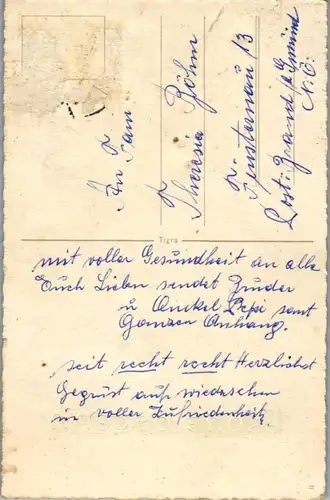 An Fam.
Theresia Böhm
Finsternau 13
Post: Brand b/ Gmünd
N. Ö.
Tigra
mit voller Gesundheit an alle
Euch Lieben sendet
u Onckel Pepi samt
Ganzen Anhang.
seit recht recht Herzlichst
Gegrüst auf wiedersehen
in voller Zufriedenheit